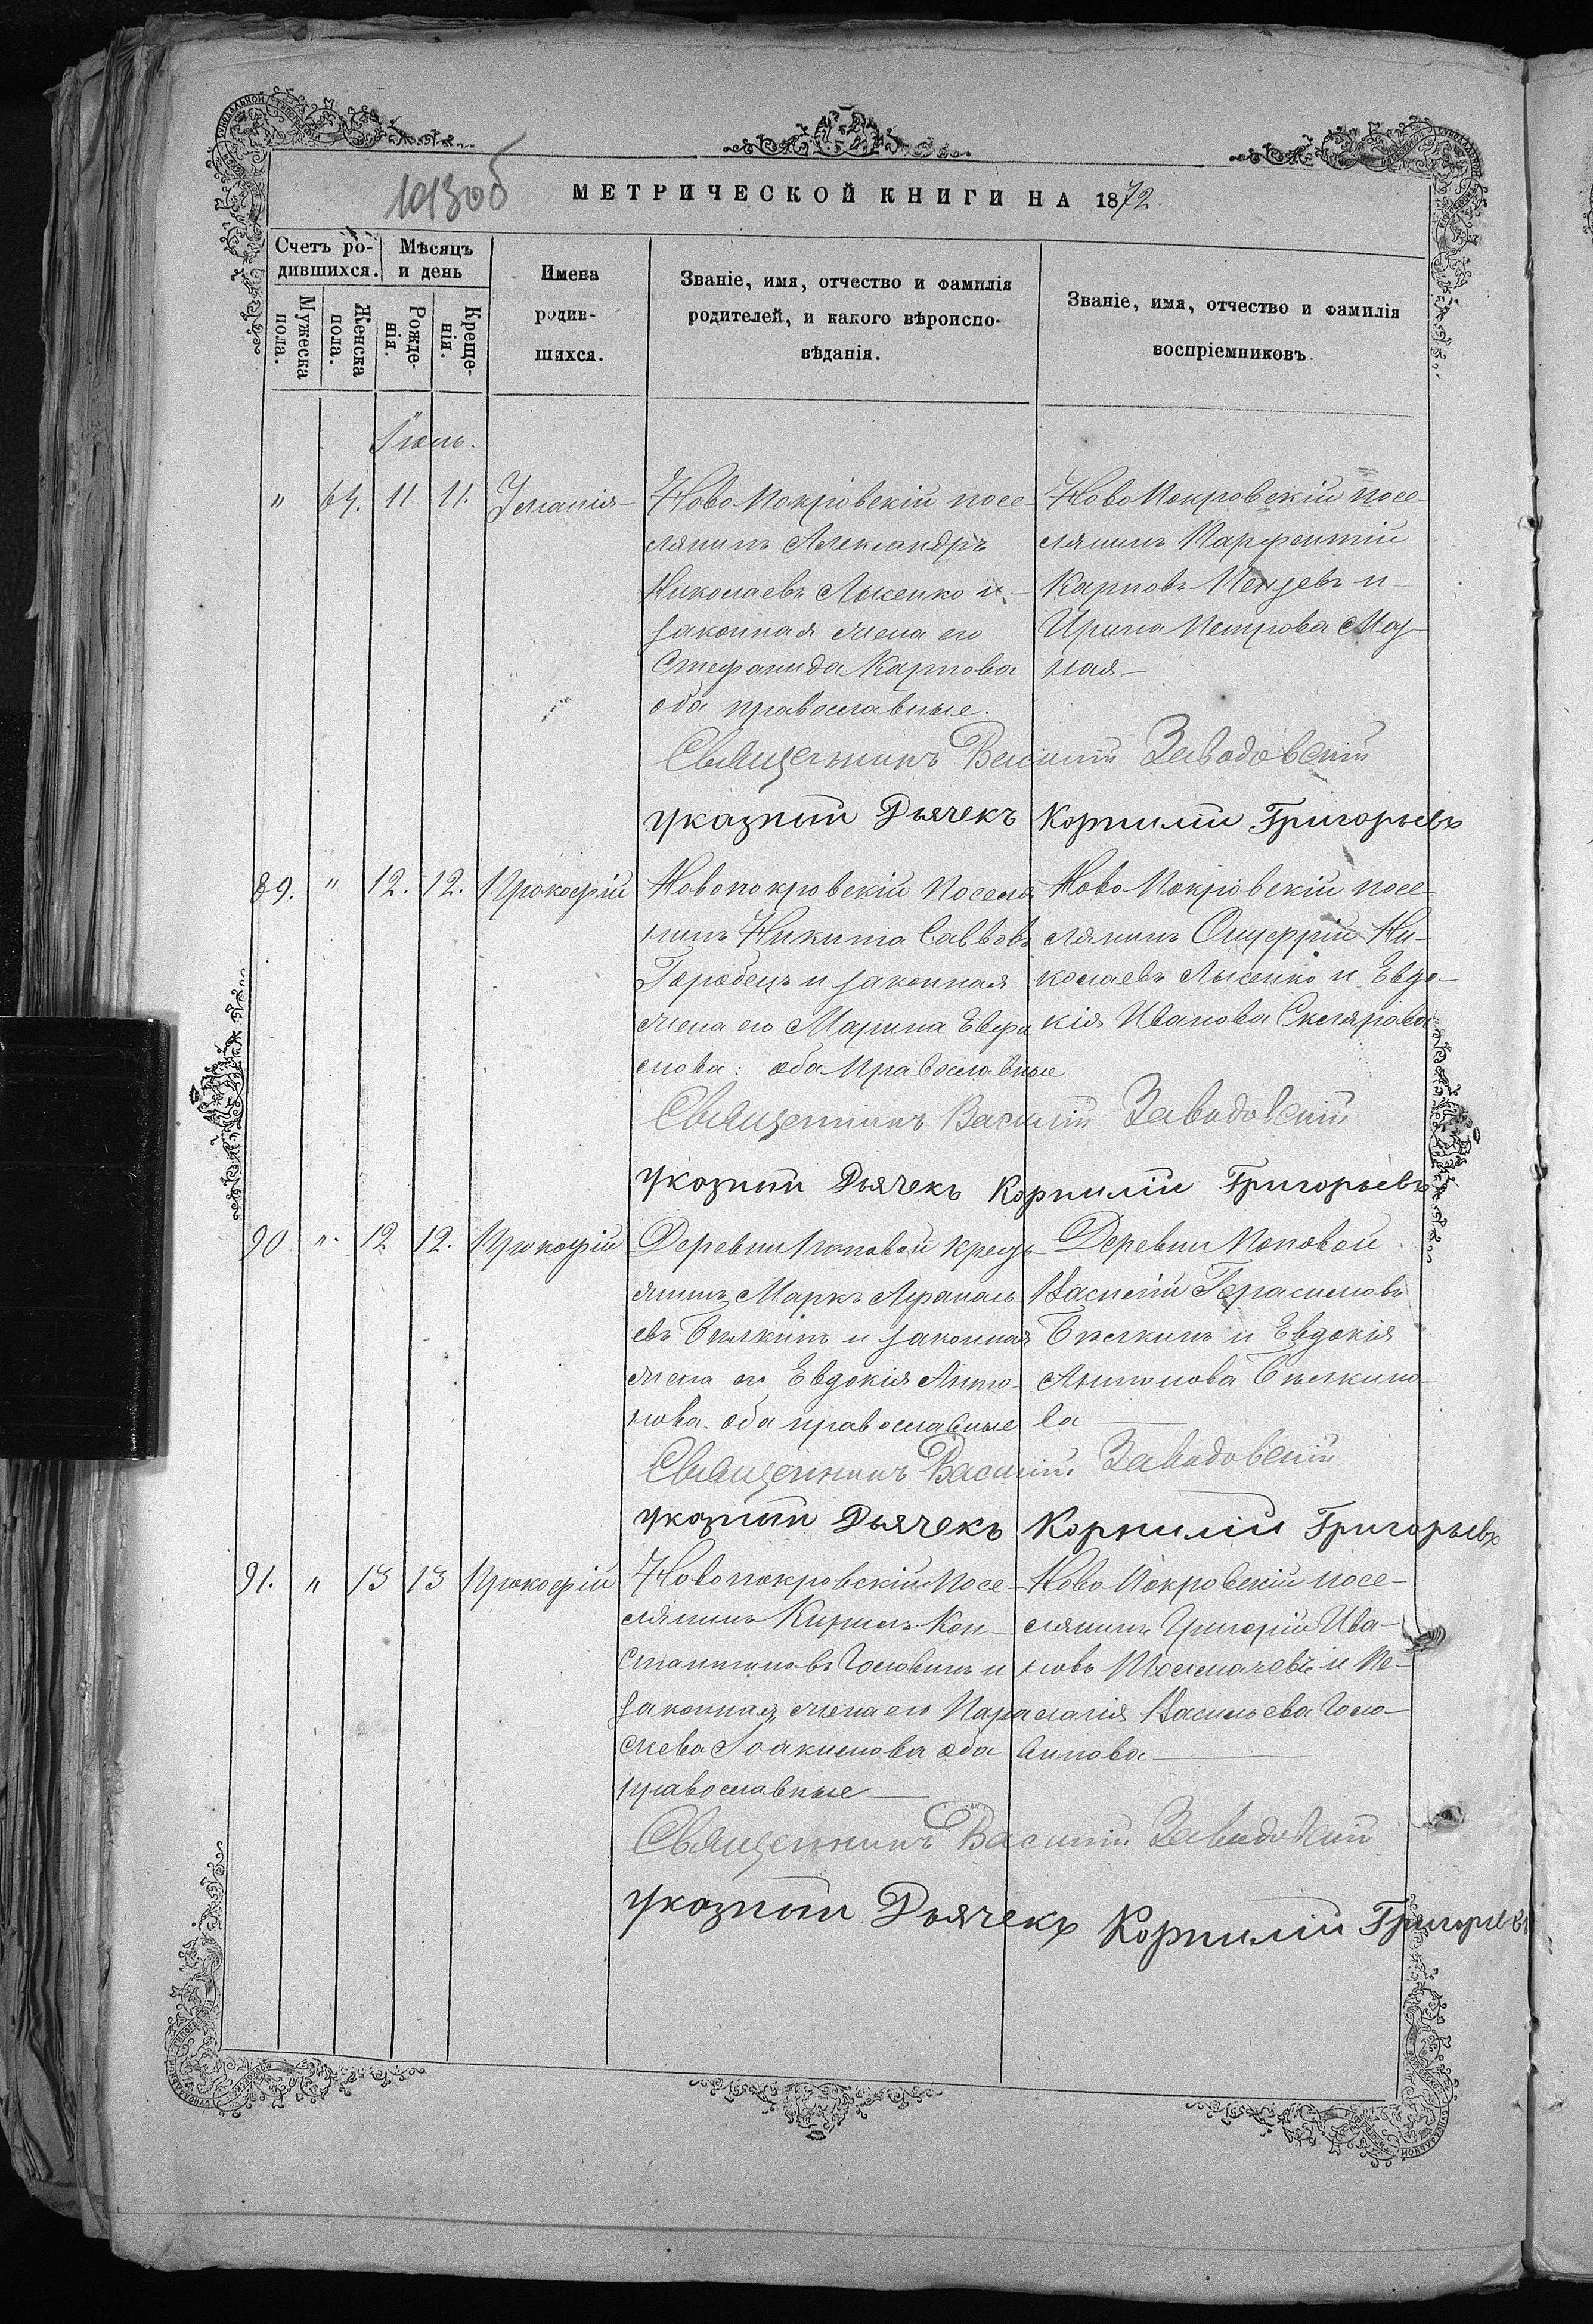 1013об
МЕТРИЧЕСКОЙ КНИГИ НА 1872.
Счетъ ро-
дившихся.
Мѣсяцъ
и день
Имена
родив-
шихся.
Званіе, имя, отчество и фамилія
родителей, и какого вѣроиспо-
вѣданія.
Званіе, имя, отчество и фамилія
воспріемниковъ.
Мужеска
пола.
Женска
пола.
Рожде-
нія.
Креще-
нія.
Іюль.
" 64. 11 11.
Ново Покровскій посе-
лянинъ Александръ
Николаевъ Лысенко и
законная жена его
Стефанида Карпова
оба православные.
Ново Покровскій посе-
лянинъ Парфентій
Карповъ и
Ирина Петрова
ная
Священникъ Василій Заводовскій
Указный Дьячекъ Корнилій Григорьевъ
89. " 12. 12. Прокофій
Новопокровскій поселя
нинъ Никита Саввовъ
Горобецъ и законная
жена его Марина Евфи
мова: оба православные
Ново Покровскій посе-
лянинъ Онуфрій Ни-
колаевъ Лысенко и Евдо-
кія Иванова Склярова
Священникъ Василій Заводовскій
Указный Дьячекъ Корнилій Григорьевъ
90 " 12 12. Прокофій
Деревни Поповой крестъ-
янинъ Маркъ Афанась-
евъ Бѣлкинъ и законная
жена его Евдокія Анто-
нова оба православные
Деревни Поповой
Василій Герасимовъ
Бѣлкинъ и Евдокія
Антонова Бѣлкино-
ва
Священникъ Василій Заводовскій
Указный Дьячекъ Корнилій Григорьевъ
91. " 13 13 Прокофій
Новопокровскій посе-
лянинъ Кирилъ Кон-
стантиновъ Головинъ и
законная жена его Пара
скева Іоакимова оба
православные
Ново Покровскій посе-
лянинъ Григорій Ива-
новъ Толмачевъ и Пе-
лагія Васильева Голо-
винова
Священникъ Василій Заводовскій
Указный Дьячекъ Корнилій Григорьевъ